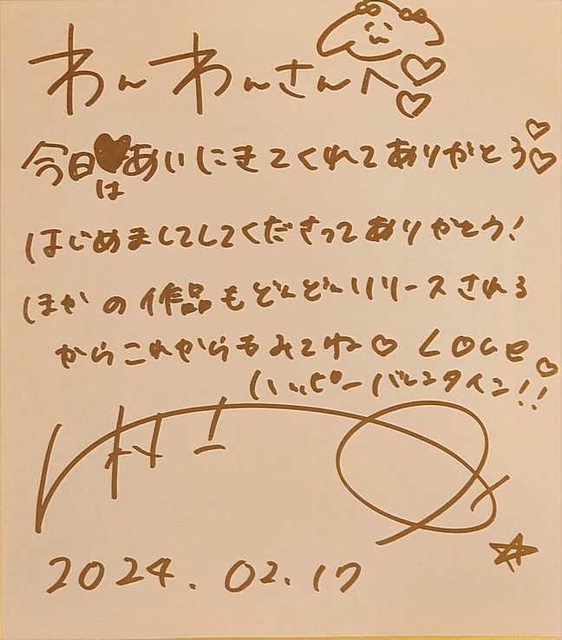 わんわんさんへ♡♡
今日は♥あいにきてくれてありがとう♡♡
はじめましてしてくださってありがとう!
ほかの作品もどんどんリリースされる
からこれからもみてね♡ LOVE♡
ハッピーバレンタイン!!
2024.02.17